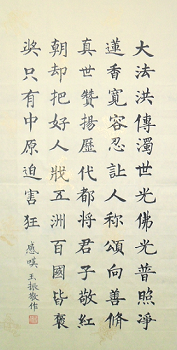 大法洪傳濁世光佛光普照淨
蓮香寬容忍让人称頌向善脩
真世贊揚歷代都將君子敬紅
朝却把好人戕五洲百國皆褒
奖只有中原迫害狂 感嘆 王振敬作